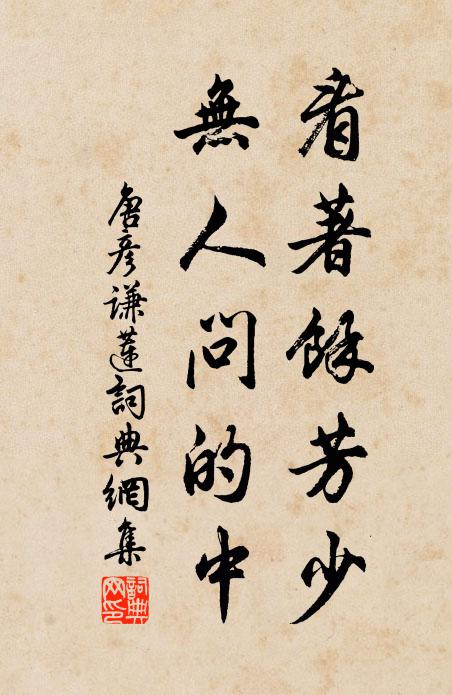 看著餘芳少
無人問的中
唐彥謙蓮詞典網集
詞典网印